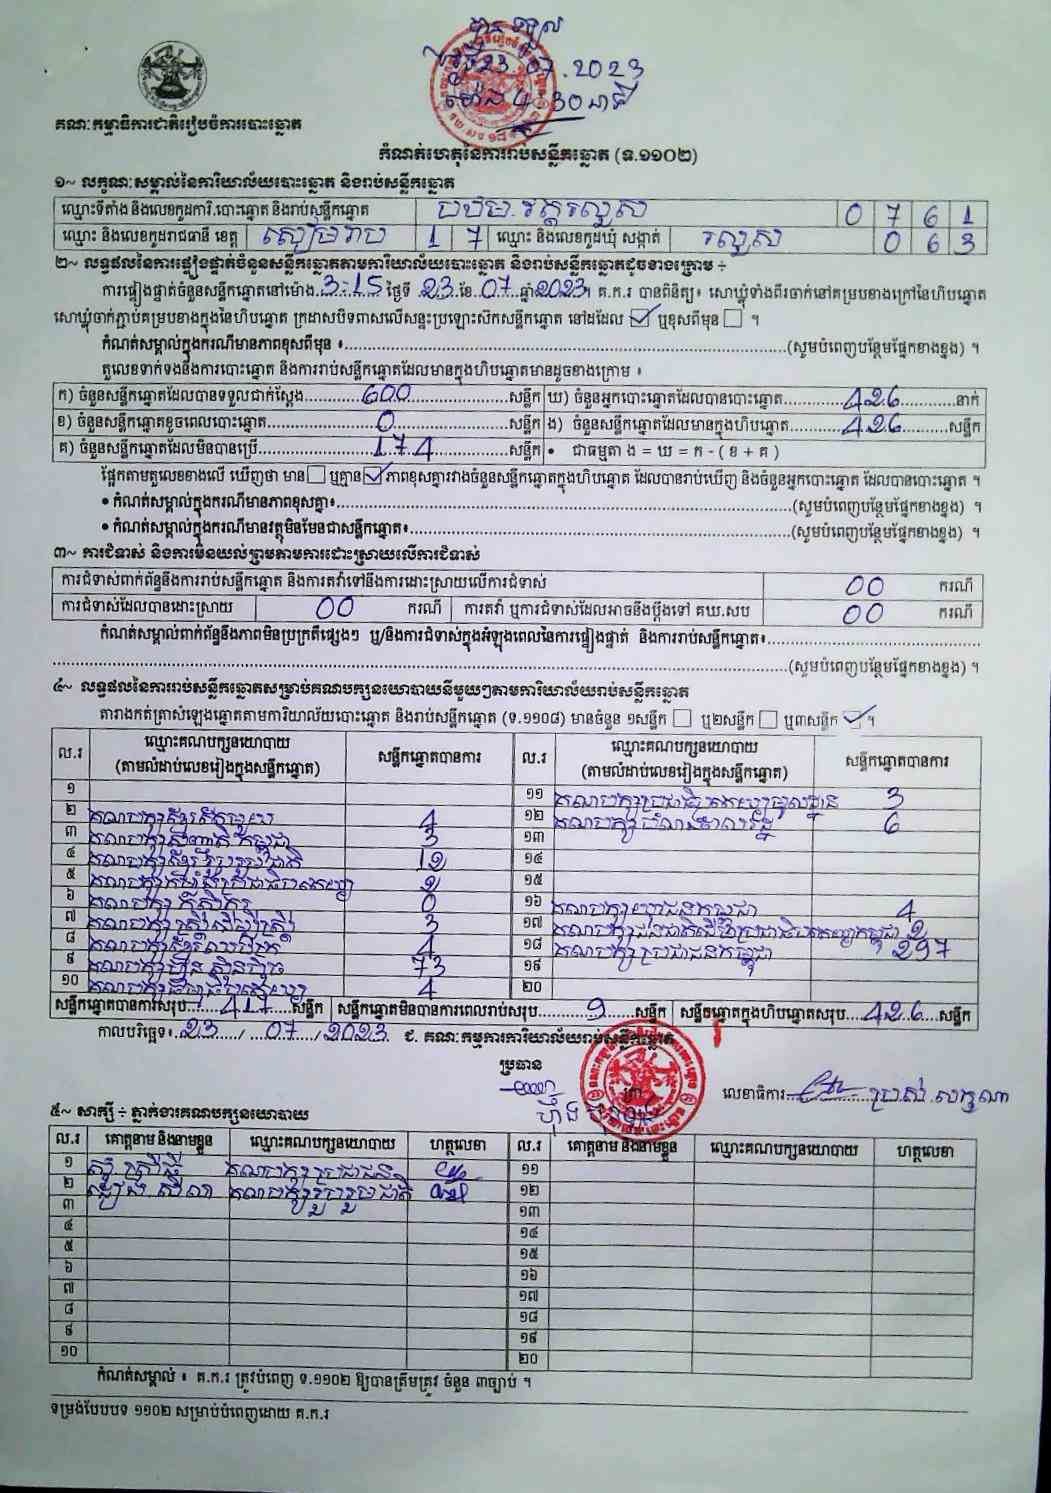 បានទទួល
ថ្ងៃ 23.07.2023
ម៉ោង 4:30 នាទី
គណៈកម្មាធិការជាតិរៀបចំការបោះឆ្នោត
កំណត់ហេតុនៃការរាប់សន្លឹកឆ្នោត (ទ.១១០២)
១~ លក្ខណៈសម្គាល់នៃការិយាល័យបោះឆ្នោត និងរាប់សន្លឹកឆ្នោត
ឈ្មោះទីតាំង និងលេខកូដការិ.បោះឆ្នោត និងរាប់សន្លឹកឆ្នោត វត្តរលួស 0 7 6 1
ឈ្មោះ និងលេខកូដរាជធានី ខេត្ត សៀមរាប 1 7 ឈ្មោះ និងលេខកូដឃុំ សង្កាត់ រលួស 0 6 3
២~ លទ្ធផលនៃការផ្ទៀងផ្ទាត់ចំនួនសន្លឹកឆ្នោតតាមការិយាល័យបោះឆ្នោត និងរាប់សន្លឹកឆ្នោតដូចខាងក្រោម ÷
ការផ្ទៀងផ្ទាត់ចំនួនសន្លឹកឆ្នោតនៅម៉ោង 3:15 ថ្ងៃទី 23 ខែ 07 ឆ្នាំ 2023។ គ.ក.រ បានពិនិត្យ៖ សោឃ្លុំទាំងពីរចាក់នៅគម្របខាងក្រៅនៃហិបឆ្នោត
សោឃ្លុំចាក់ភ្ជាប់គម្របខាងក្នុងនៃហិបឆ្នោត ក្រដាសបិទពាសលើសន្ទះប្រឡោះស៊កសន្លឹកឆ្នោត នៅដដែល ☑ ឬខុសពីមុន ☐ ។
កំណត់សម្គាល់ក្នុងករណីមានភាពខុសពីមុន ៖ (សូមបំពេញបន្ថែមផ្នែកខាងខ្នង) ។
តួលេខទាក់ទងនឹងការបោះឆ្នោត និងការរាប់សន្លឹកឆ្នោតដែលមានក្នុងហិបឆ្នោតមានដូចខាងក្រោម ៖
ក) ចំនួនសន្លឹកឆ្នោតដែលបានទទួលជាក់ស្តែង 600 សន្លឹក ឃ) ចំនួនអ្នកបោះឆ្នោតដែលបានបោះឆ្នោត 426 នាក់
ខ) ចំនួនសន្លឹកឆ្នោតខូចពេលបោះឆ្នោត 0 សន្លឹក ង) ចំនួនសន្លឹកឆ្នោតដែលមានក្នុងហិបឆ្នោត 426 សន្លឹក
គ) ចំនួនសន្លឹកឆ្នោតដែលមិនបានប្រើ 174 សន្លឹក • ជាធម្មតា ង = ឃ = ក - ( ខ + គ )
ផ្អែកតាមតួលេខខាងលើ ឃើញថា មាន ☐ ឬគ្មាន ☑ ភាពខុសគ្នារវាងចំនួនសន្លឹកឆ្នោតក្នុងហិបឆ្នោត ដែលបានរាប់ឃើញ និងចំនួនអ្នកបោះឆ្នោត ដែលបានបោះឆ្នោត ។
• កំណត់សម្គាល់ក្នុងករណីមានភាពខុសគ្នា៖ (សូមបំពេញបន្ថែមផ្នែកខាងខ្នង) ។
• កំណត់សម្គាល់ក្នុងករណីមានវត្ថុមិនមែនជាសន្លឹកឆ្នោត៖ (សូមបំពេញបន្ថែមផ្នែកខាងខ្នង) ។
៣~ ការជំទាស់ និងការមិនយល់ព្រមតាមការដោះស្រាយលើការជំទាស់
ការជំទាស់ពាក់ព័ន្ធនឹងការរាប់សន្លឹកឆ្នោត និងការតវ៉ាទៅនឹងការដោះស្រាយលើការជំទាស់ 00 ករណី
ការជំទាស់ដែលបានដោះស្រាយ 00 ករណី ការតវ៉ា ឬការជំទាស់ដែលអាចនឹងប្តឹងទៅ គឃ.សប 00 ករណី
កំណត់សម្គាល់ពាក់ព័ន្ធនឹងភាពមិនប្រក្រតីផ្សេងៗ ឬ/និងការជំទាស់ក្នុងអំឡុងពេលនៃការផ្ទៀងផ្ទាត់ និងការរាប់សន្លឹកឆ្នោត៖
(សូមបំពេញបន្ថែមផ្នែកខាងខ្នង) ។
៤~ លទ្ធផលនៃការរាប់សន្លឹកឆ្នោតសម្រាប់គណបក្សនយោបាយនីមួយៗតាមការិយាល័យរាប់សន្លឹកឆ្នោត
តារាងកត់ត្រាសំឡេងឆ្នោតតាមការិយាល័យបោះឆ្នោត និងរាប់សន្លឹកឆ្នោត (ទ.១១០៨) មានចំនួន ១សន្លឹក ☐ ឬ២សន្លឹក ☐ ឬ៣សន្លឹក ☑ ។
ល.រ ឈ្មោះគណបក្សនយោបាយ (តាមលំដាប់លេខរៀងក្នុងសន្លឹកឆ្នោត) សន្លឹកឆ្នោតបានការ ល.រ ឈ្មោះគណបក្សនយោបាយ (តាមលំដាប់លេខរៀងក្នុងសន្លឹកឆ្នោត) សន្លឹកឆ្នោតបានការ
១ ១១ គណបក្សប្រជាធិបតេយ្យមូលដ្ឋាន 3
២ គណបក្សខ្មែរតែមួយ 4 ១២ គណបក្ស 6
៣ គណបក្សសញ្ជាតិកម្ពុជា 3 ១៣
៤ គណបក្សខ្មែររួបរួមជាតិ 12 ១៤
៥ គណបក្សសំបុកឃ្មុំ 2 ១៥
៦ គណបក្សកសិករ 0 ១៦ គណបក្សយុវជនកម្ពុជា 4
៧ គណបក្សស្ត្រីដើម្បីស្ត្រី 3 ១៧ គណបក្សជនជាតិដើមប្រជាធិបតេយ្យកម្ពុជា 2
៨ គណបក្សខ្មែរឈប់ក្រ 4 ១៨ គណបក្សប្រជាជនកម្ពុជា 297
៩ គណបក្សហ៊្វុនស៊ិនប៉ិច 73 ១៩
១០ គណបក្សធម្មាធិបតេយ្យ 4 ២០
សន្លឹកឆ្នោតបានការសរុប 417 សន្លឹក សន្លឹកឆ្នោតមិនបានការពេលរាប់សរុប 9 សន្លឹក សន្លឹកឆ្នោតក្នុងហិបឆ្នោតសរុប 426 សន្លឹក
កាលបរិច្ឆេទ៖ 23 / 07 / 2023 ជ. គណៈកម្មការការិយាល័យរាប់សន្លឹកឆ្នោត
ប្រធាន
លេខាធិការ ប្រុស លក្ខណា
៥~ សាក្សី ÷ ភ្នាក់ងារគណបក្សនយោបាយ
ល.រ គោត្តនាម និងនាមខ្លួន ឈ្មោះគណបក្សនយោបាយ ហត្ថលេខា ល.រ គោត្តនាម និងនាមខ្លួន ឈ្មោះគណបក្សនយោបាយ ហត្ថលេខា
១ គណបក្សប្រជាជន ១១
២ គណបក្សរួបរួមជាតិ ១២
៣ ១៣
៤ ១៤
៥ ១៥
៦ ១៦
៧ ១៧
៨ ១៨
៩ ១៩
១០ ២០
កំណត់សម្គាល់ ៖ គ.ក.រ ត្រូវបំពេញ ទ.១១០២ ឱ្យបានត្រឹមត្រូវ ចំនួន ៣ច្បាប់ ។
ទម្រង់បែបបទ ១១០២ សម្រាប់បំពេញដោយ គ.ក.រ